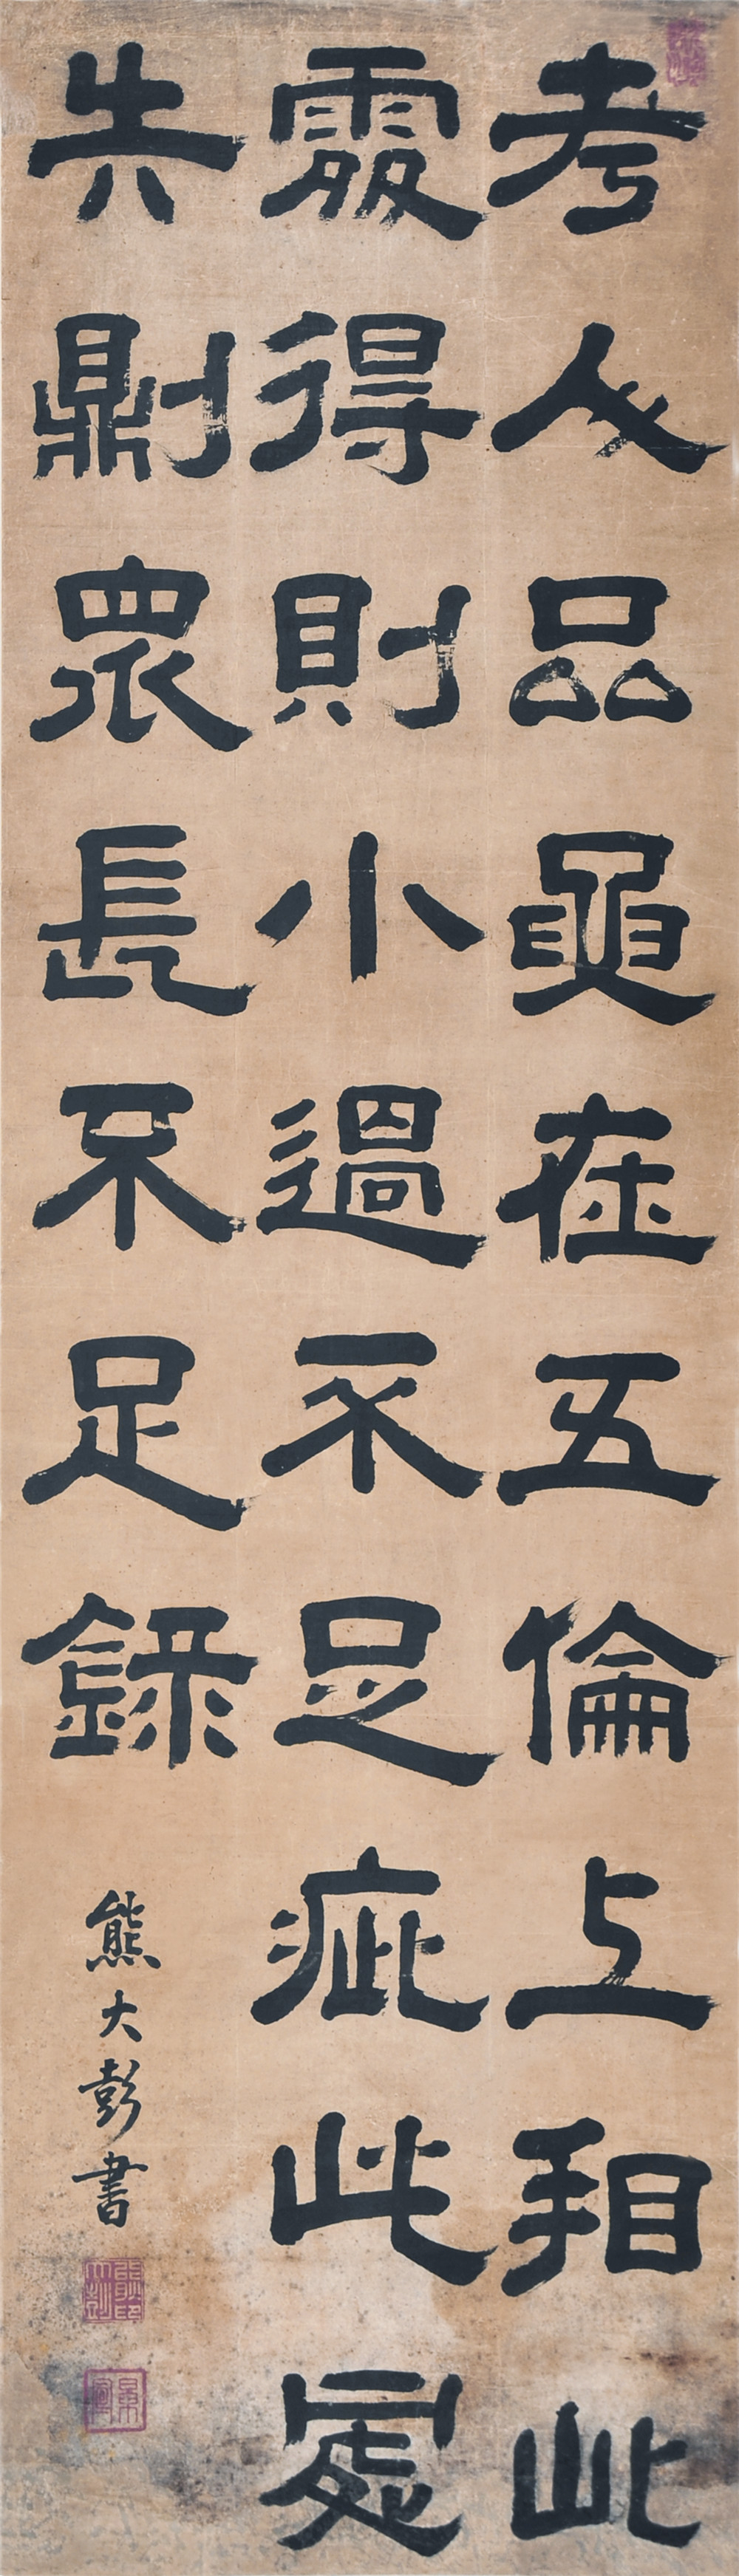 考人品要在五倫上相此
處得則小過不足疵此處
失則眾長不足錄
熊大彭書